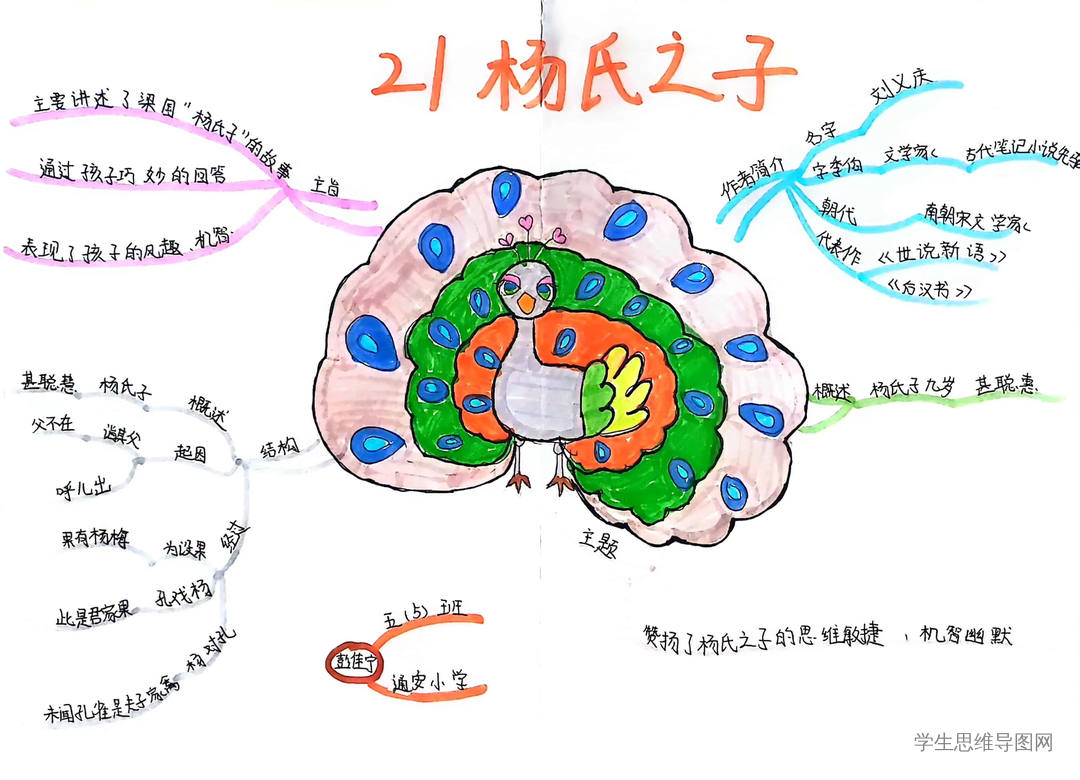 21 杨氏之子
主要讲述了梁国“杨氏子”的故事
通过孩子巧妙的回答
表现了孩子的风趣、机智.
主旨
作者简介
名字
刘义庆
字季伯
文学家
古代笔记小说先
朝代
南朝宋文学家
代表作
《世说新语》
《后汉书》
概述
杨氏子九岁
甚聪惠
结构
概述
杨氏子
甚聪惠
起因
诣其父
父不在
呼儿出
经过
为设果
果有杨梅
孔戏杨
此是君家果
杨对孔
未闻孔雀是夫子家禽
主题
赞扬了杨氏之子的思维敏捷、机智幽默
五(5)班
彭佳宁
通安小学
学生思维导图网